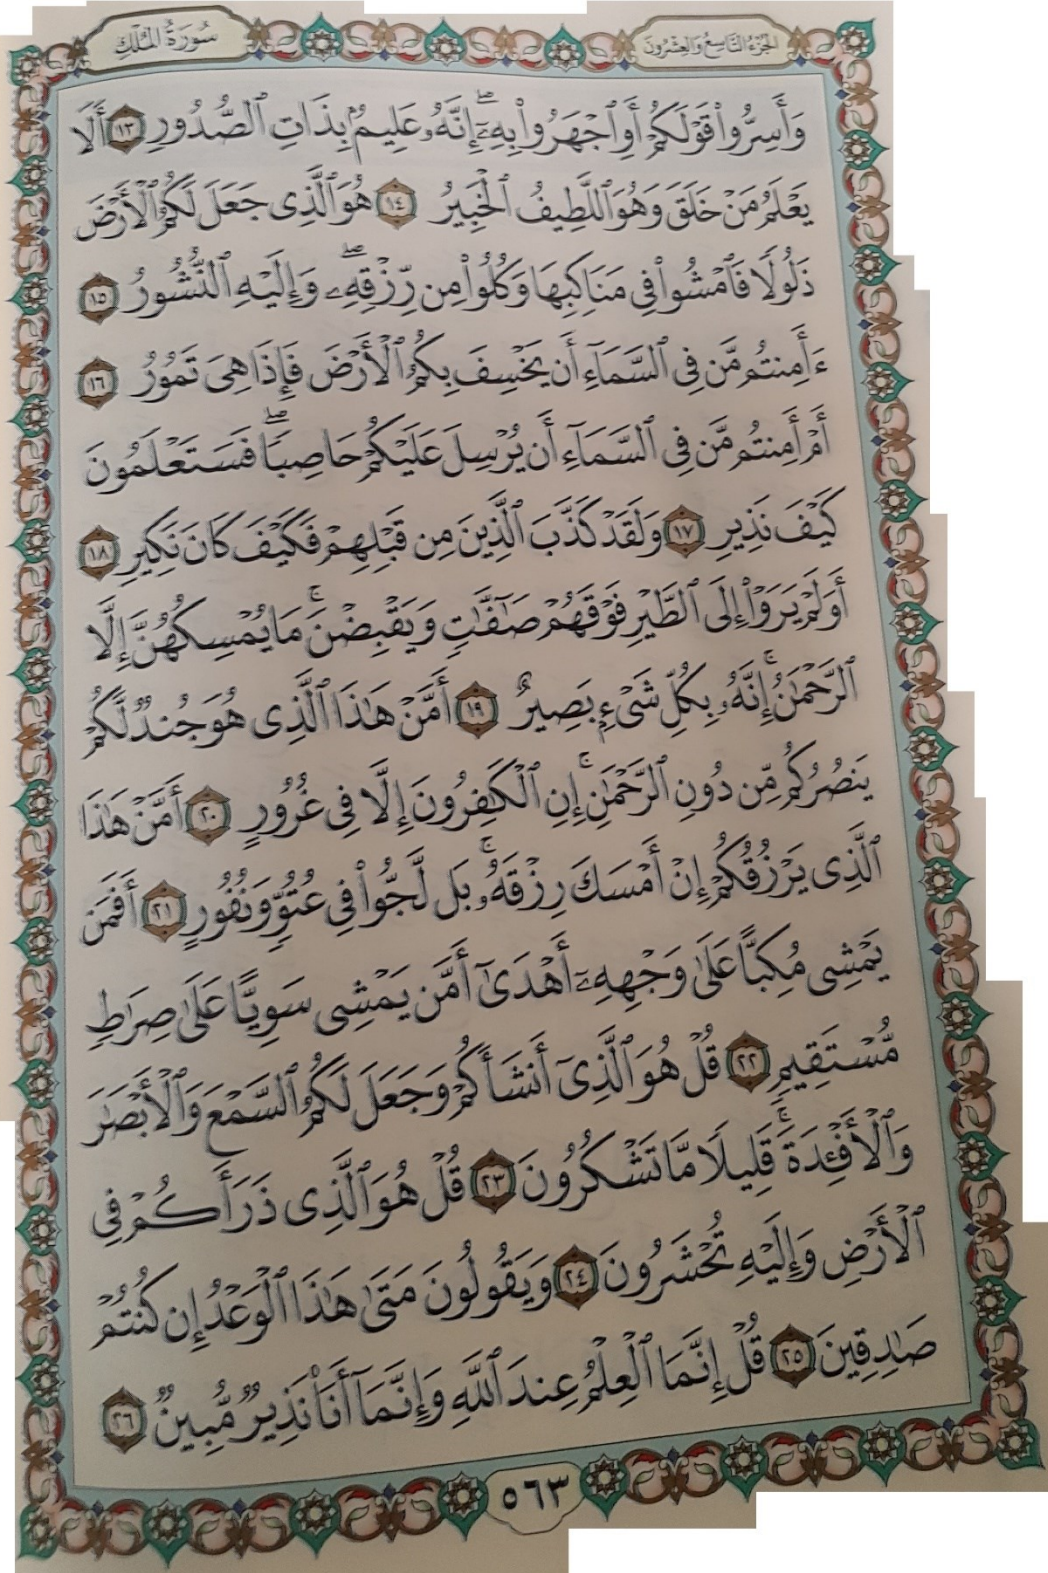 الجزء التاسع والعشرون
سورة الملك
وَأَسِرُّواْ قَوۡلَكُمۡ أَوِ ٱجۡهَرُواْ بِهِۦٓۖ إِنَّهُۥ عَلِيمُۢ بِذَاتِ ٱلصُّدُورِ ١٣ أَلَا
يَعۡلَمُ مَنۡ خَلَقَ وَهُوَ ٱللَّطِيفُ ٱلۡخَبِيرُ ١٤ هُوَ ٱلَّذِي جَعَلَ لَكُمُ ٱلۡأَرۡضَ
ذَلُولٗا فَٱمۡشُواْ فِي مَنَاكِبِهَا وَكُلُواْ مِن رِّزۡقِهِۦۖ وَإِلَيۡهِ ٱلنُّشُورُ ١٥
ءَأَمِنتُم مَّن فِي ٱلسَّمَآءِ أَن يَخۡسِفَ بِكُمُ ٱلۡأَرۡضَ فَإِذَا هِيَ تَمُورُ ١٦
أَمۡ أَمِنتُم مَّن فِي ٱلسَّمَآءِ أَن يُرۡسِلَ عَلَيۡكُمۡ حَاصِبٗاۖ فَسَتَعۡلَمُونَ
كَيۡفَ نَذِيرِ ١٧ وَلَقَدۡ كَذَّبَ ٱلَّذِينَ مِن قَبۡلِهِمۡ فَكَيۡفَ كَانَ نَكِيرِ ١٨
أَوَلَمۡ يَرَوۡاْ إِلَى ٱلطَّيۡرِ فَوۡقَهُمۡ صَٰٓفَّٰتٖ وَيَقۡبِضۡنَۚ مَا يُمۡسِكُهُنَّ إِلَّا
ٱلرَّحۡمَٰنُۚ إِنَّهُۥ بِكُلِّ شَيۡءِۭ بَصِيرٌ ١٩ أَمَّنۡ هَٰذَا ٱلَّذِي هُوَ جُندٞ لَّكُمۡ
يَنصُرُكُم مِّن دُونِ ٱلرَّحۡمَٰنِۚ إِنِ ٱلۡكَٰفِرُونَ إِلَّا فِي غُرُورٍ ٢٠ أَمَّنۡ هَٰذَا
ٱلَّذِي يَرۡزُقُكُمۡ إِنۡ أَمۡسَكَ رِزۡقَهُۥۚ بَل لَّجُّواْ فِي عُتُوّٖ وَنُفُورٍ ٢١ أَفَمَن
يَمۡشِي مُكِبًّا عَلَىٰ وَجۡهِهِۦٓ أَهۡدَىٰٓ أَمَّن يَمۡشِي سَوِيًّا عَلَىٰ صِرَٰطٖ
مُّسۡتَقِيمٖ ٢٢ قُلۡ هُوَ ٱلَّذِيٓ أَنشَأَكُمۡ وَجَعَلَ لَكُمُ ٱلسَّمۡعَ وَٱلۡأَبۡصَٰرَ
وَٱلۡأَفۡـِٔدَةَۚ قَلِيلٗا مَّا تَشۡكُرُونَ ٢٣ قُلۡ هُوَ ٱلَّذِي ذَرَأَكُمۡ فِي
ٱلۡأَرۡضِ وَإِلَيۡهِ تُحۡشَرُونَ ٢٤ وَيَقُولُونَ مَتَىٰ هَٰذَا ٱلۡوَعۡدُ إِن كُنتُمۡ
صَٰدِقِينَ ٢٥ قُلۡ إِنَّمَا ٱلۡعِلۡمُ عِندَ ٱللَّهِ وَإِنَّمَآ أَنَا۠ نَذِيرٞ مُّبِينٞ ٢٦
٥٦٣